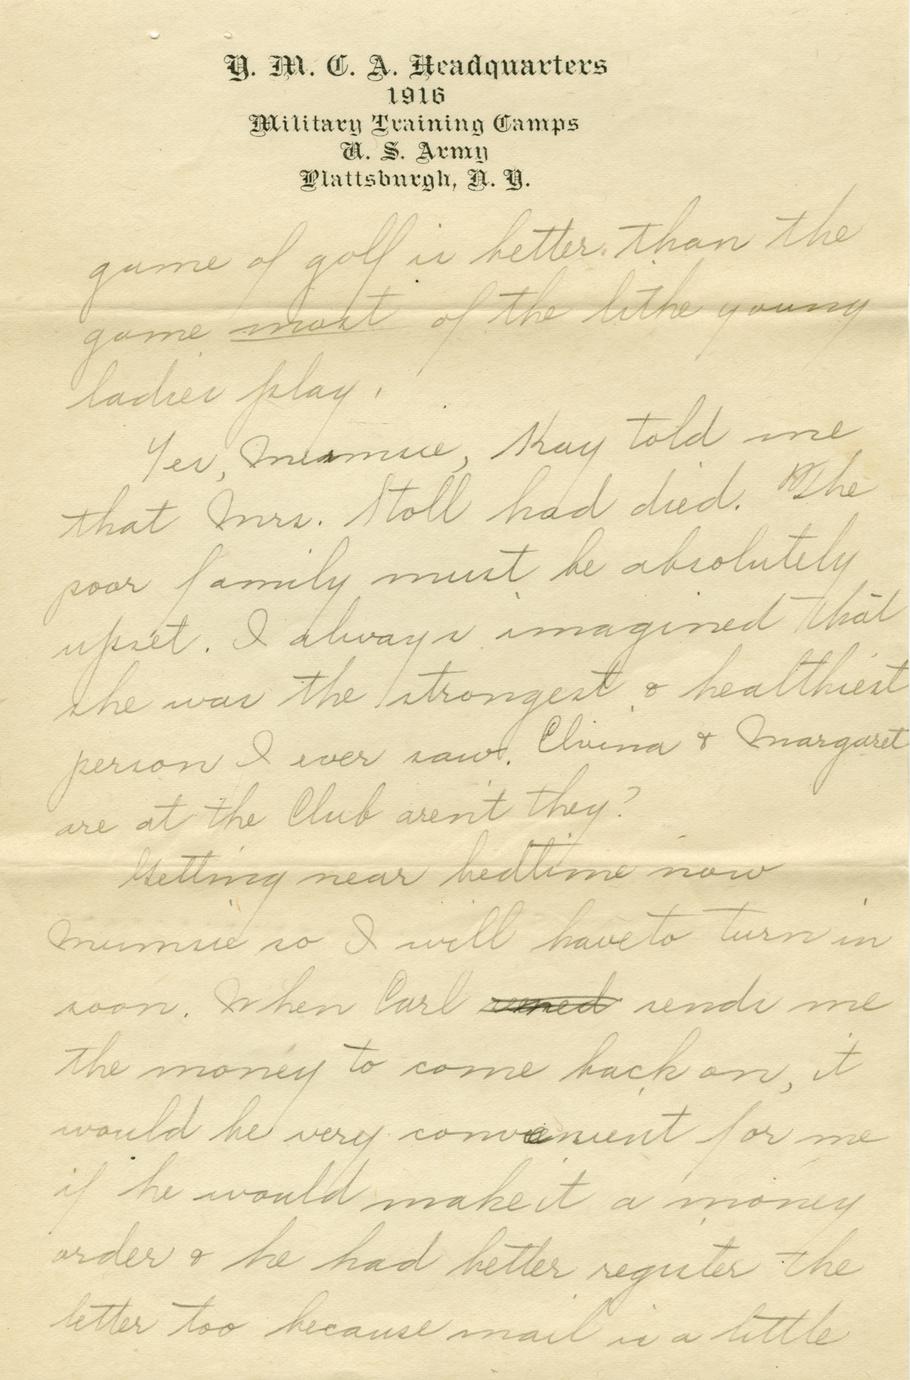 Y. M. C. A. Headquarters
1916
Military Training Camps
U. S. Army
Plattsburgh, N. Y.
game of golf is better than the
game most of the lithe young
ladies play.
Yes, Mumsie, Kay told me
that Mrs. Stoll had died. The
poor family must be absolutely
upset. I always imagined that
she was the strongest & healthiest
person I ever saw. Elvina & Margaret
are at the Club aren't they?
Getting near bedtime now
Mumsie so I will have to turn in
soon. When Carl sends me
the money to come back on, it
would be very convenient for me
if he would make it a money
order & he had better register the
letter too because mail is a little